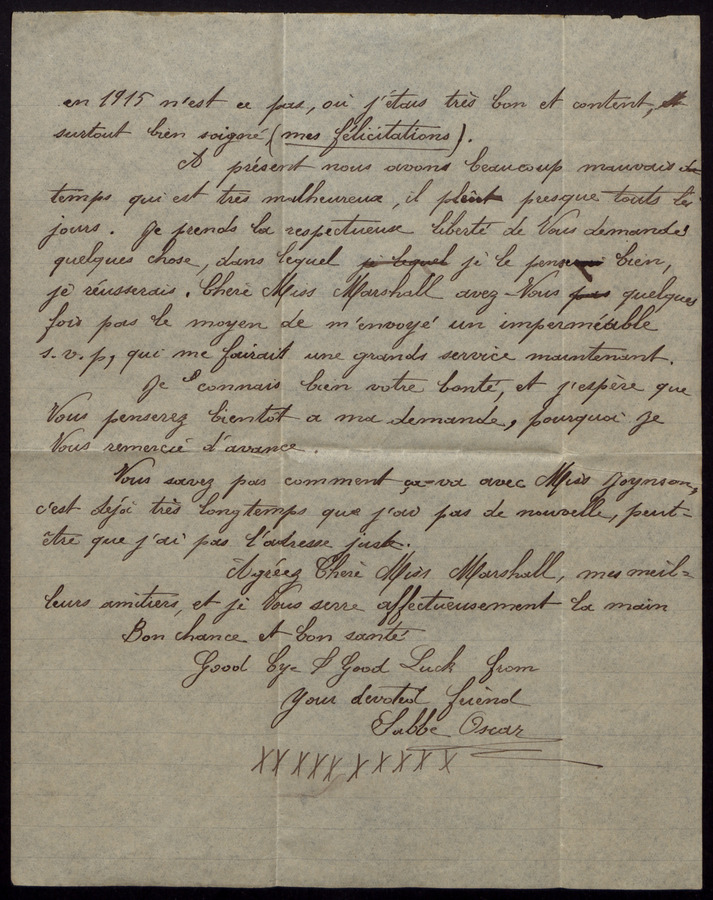 en 1915 n'est ce pas, où j'étais très bon et content, et
surtout bien soigné (mes félicitations).
A présent nous avons beaucoup mauvais de
temps qui est très malheureux, il pleut presque touts les
jours. Je prends la respectueuse liberté de Vous demander
quelques chose, dans lequel je le pense bien,
je réusserais. Cherè Miss Marshall avez-Vous pas quelques
fois pas le moyen de m'envoyé un imperméable
s.v.p, qui me fairait une grands service maintenant.
Je connais bien votre bonté, et j'espère que
Vous penserez bientôt a ma demande, pourquoi je
Vous remercié d'avance.
Vous savez pas comment ça-va avec Miss Joynson,
c'est déjà très longtemps que j'ai pas de nouvelle, peut-
être que j'ai pas l'adresse just.
Agréez Cherè Miss Marshall, mes meil=
leurs amitiers, et je Vous serre affectueusement la main
Bon chance et bon santé
Good bye & Good Luck from
your devoted friend
Sabbe Oscar
XXXXXXXXXX